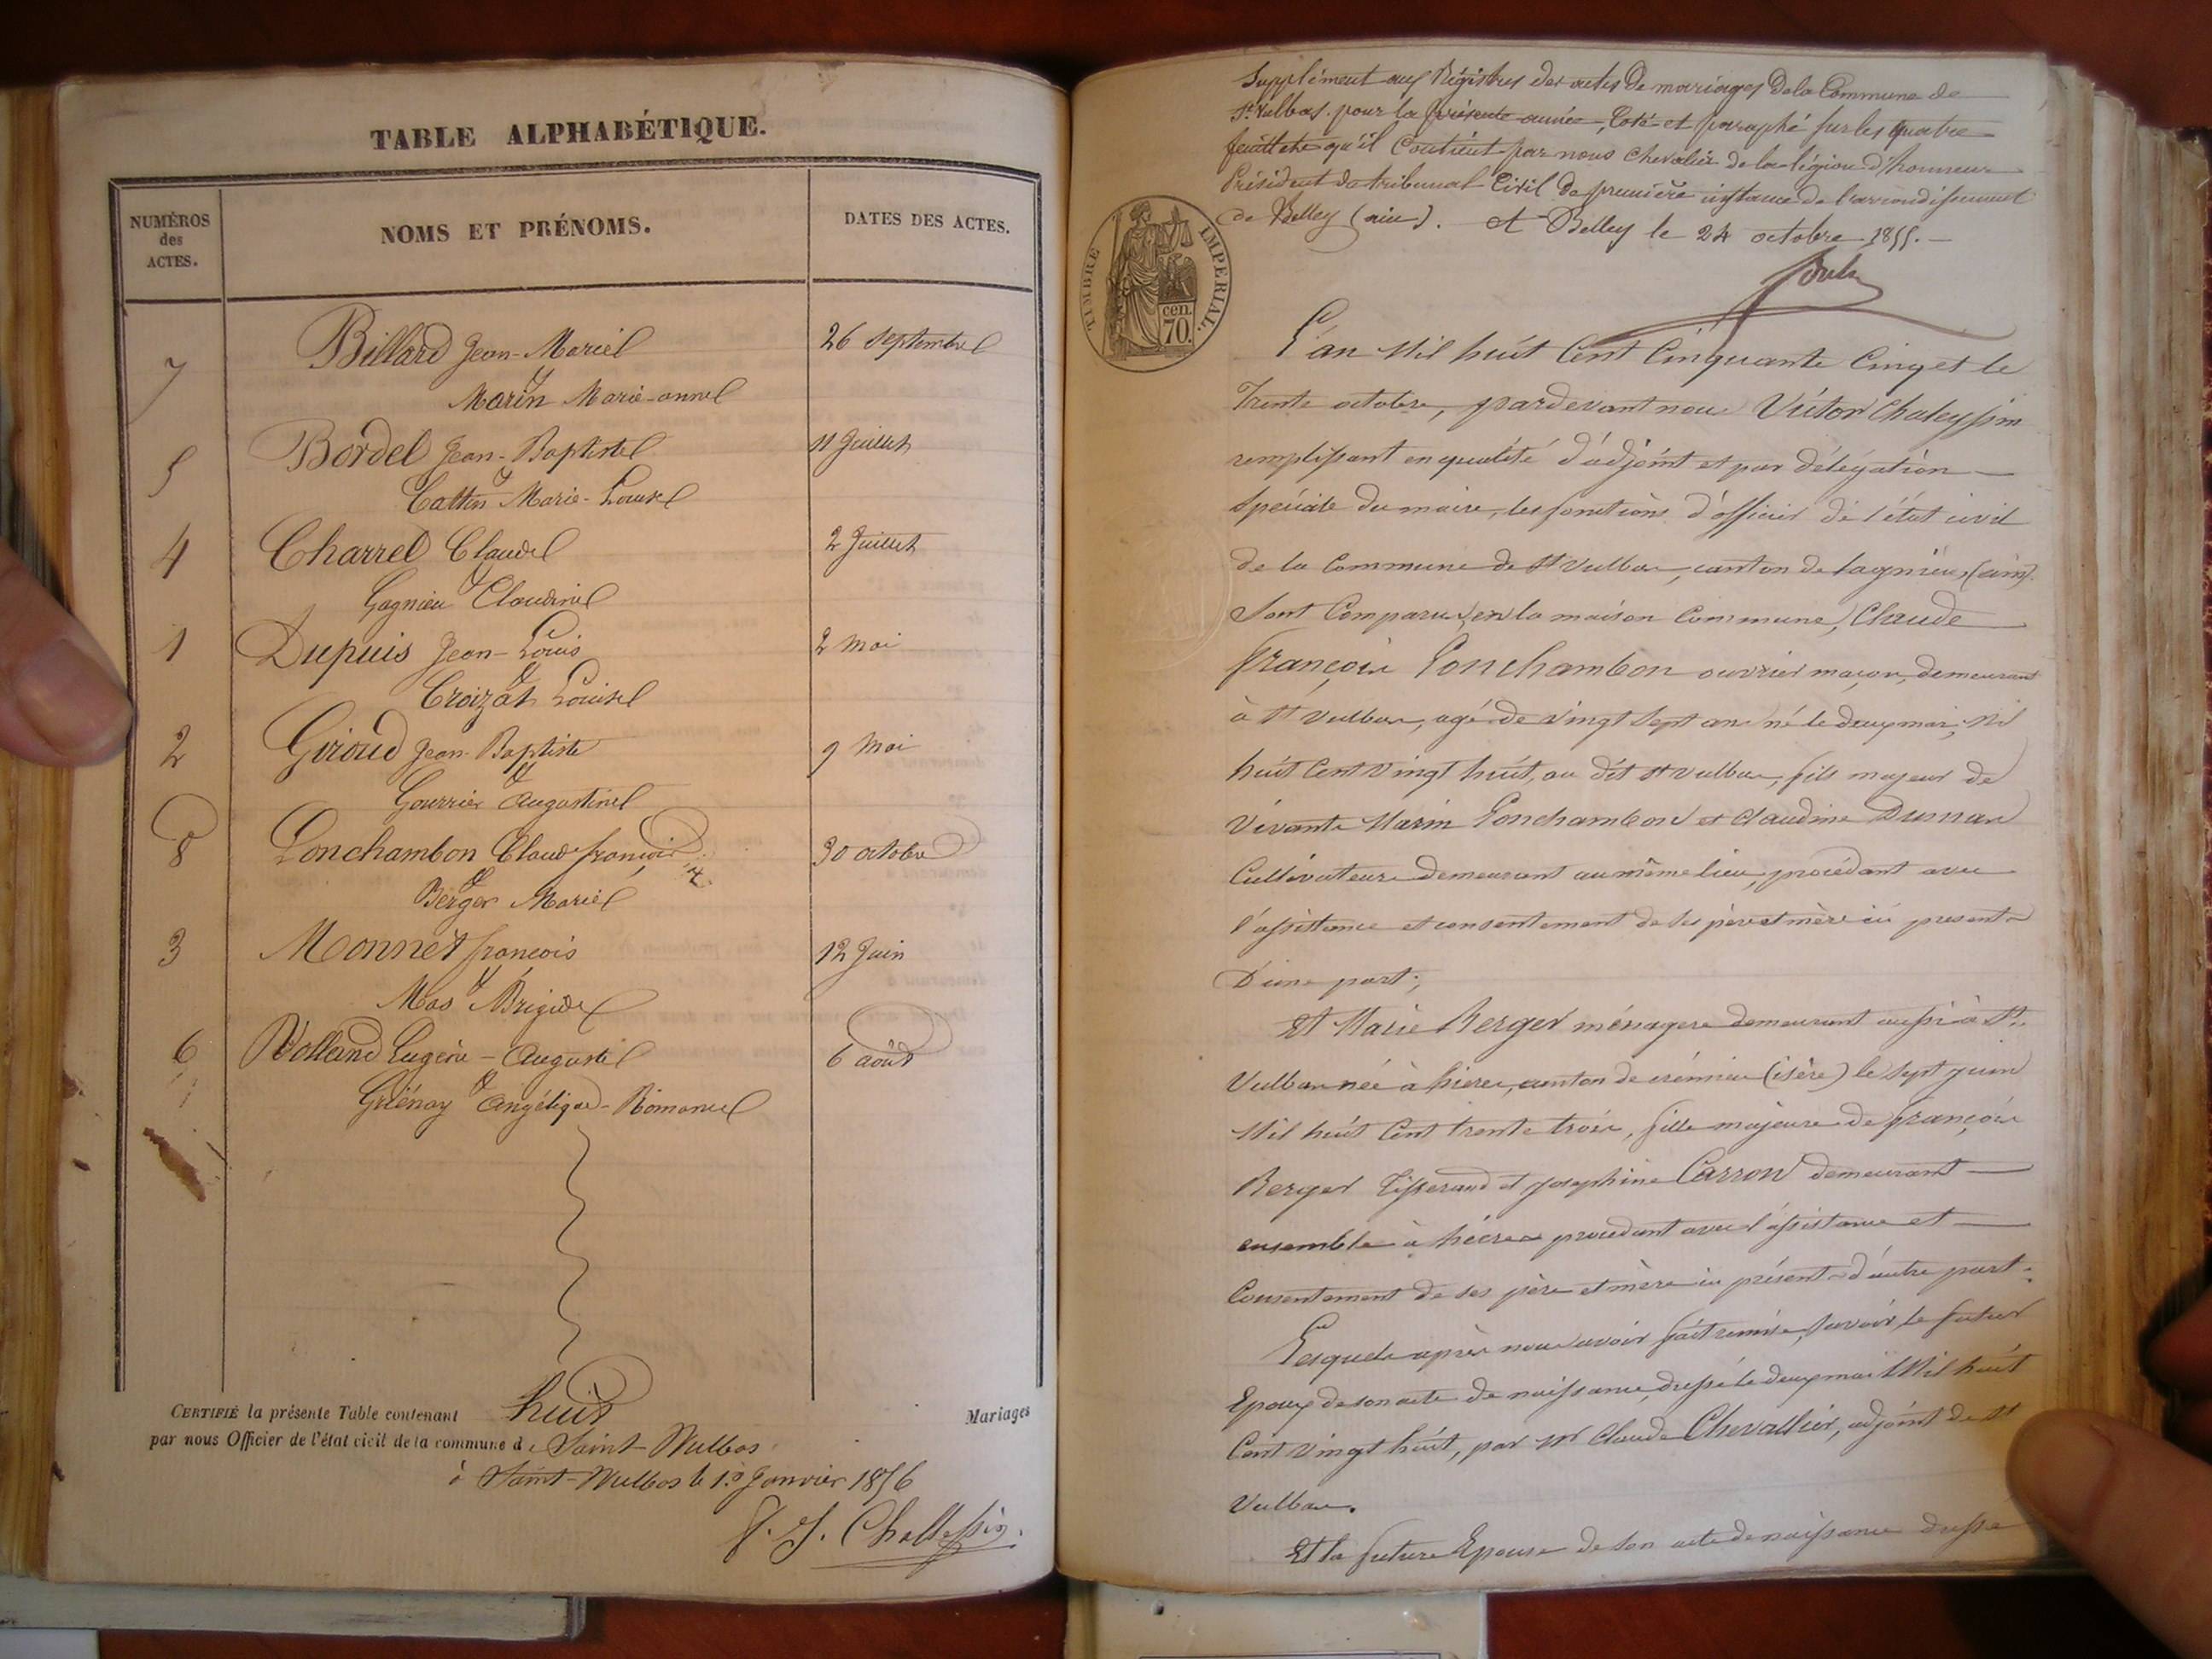 TABLE ALPHABÉTIQUE.
NUMÉROS des ACTES.
NOMS ET PRÉNOMS.
DATES DES ACTES.
7 Billard Jean-Marie 26 septembre
& Marin Marie-anne
5 Bordel Jean-Baptiste 11 Juillet
& Cattin Marie-Louise
4 Charrel Claude 2 Juillet
& Gagnieu Claudine
1 Dupuis Jean-Louis 2 Mai
& Croizat Louise
2 Giroud Jean-Baptiste 9 Mai
& Gourrier Augustine
8 Lonchambon Claude françois 30 octobre
& Berger Marie
3 Monnet françois 12 Juin
& Mas Brigide
6 Rolland Eugène-Auguste 6 août
& Angélique-Romane
CERTIFIÉ la présente Table contenant huit Mariages
par nous Officier de l'état civil de la commune d Saint-Vulbas
à Saint-Vulbas le 1er Janvier 1856
Supplément aux Régistres des actes de mariages de la Commune de
St Vulbas pour la présente année, Coté et paraphé sur les quatre
feuillets qu'il Contient par nous chevalier de la légion d'honneur
Président du tribunal Civil de première instance de l'arrondissement
de Belley (ain). A Belley le 24 octobre 1855.
TIMBRE IMPERIAL.
cen. 70.
L'an Mil huit Cent Cinquante Cinq et le
Trente octobre, pardevant nous Victor Chaleyssin
remplissant en qualité d'adjoint et par délégation
spéciale du maire, les fonctions d'officier de l'état civil
de la Commune de St Vulbas, canton de Lagnieu, (ain).
Sont Comparus en la maison Commune, Claude
François Lonchambon ouvrier maçon, demeurant
à St Vulbas, agé de vingt sept ans né le deux mai, Mil
huit Cent vingt huit, au dit St Vulbas, fils majeur de
vivants Marin Lonchambon et Claudine Dumas
Cultivateurs demeurant au même lieu, procédant avec
l'assistance et consentement de ses père et mère ici présents
D'une part;
Et Marie Berger ménagere demeurant aussi à St
Vulbas née à hieres, canton de crémieu (isère) le sept juin
Mil huit Cent trente trois, fille majeure de François
Berger Tisserand et Josephine Carron demeurant
ensemble à hières procédant avec l'assistance et
Consentement de ses père et mère ici présents d'autre part.
Lesquels après nous avoir fait remise, savoir le futur
Epoux de son acte de naissance, dressé le deux mai Mil huit
Cent vingt huit, par Mr Claude Chevallier, adjoint de St
Vulbas.
Et la future Epouse de son acte de naissance dressé